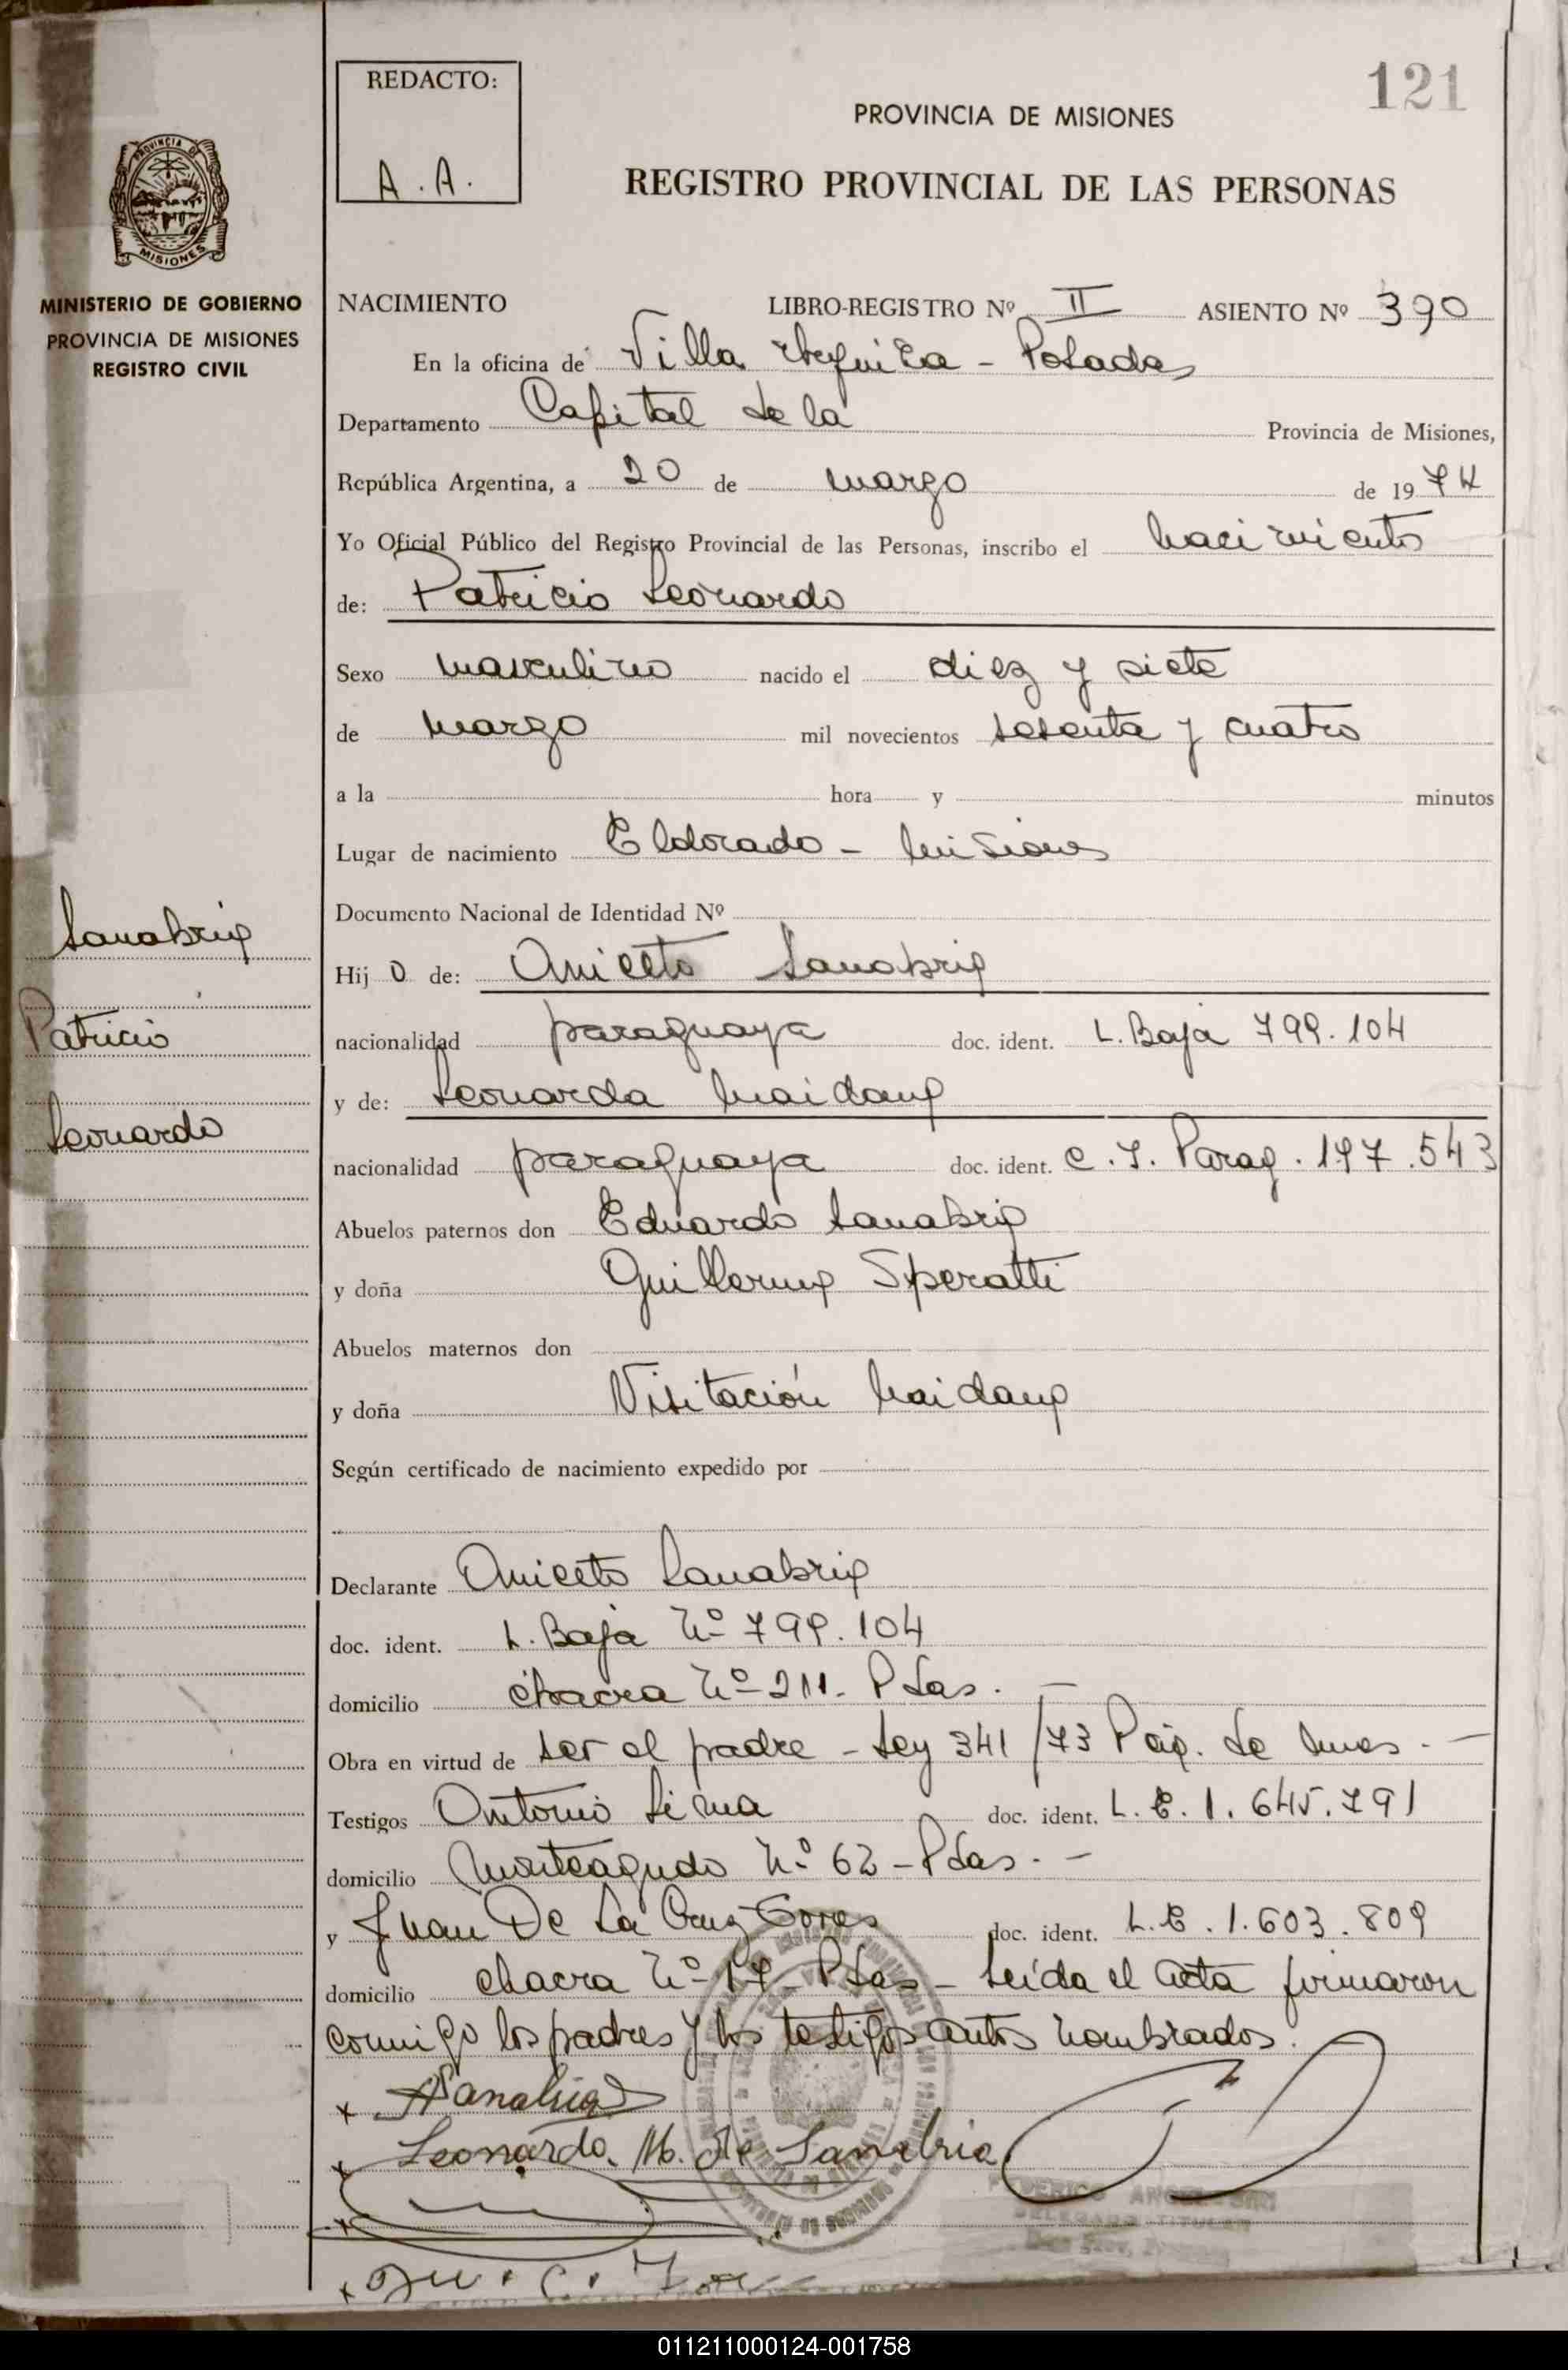 121
REDACTO:
A. A.
PROVINCIA DE MISIONES
REGISTRO PROVINCIAL DE LAS PERSONAS
PROVINCIA DE
MISIONES
MINISTERIO DE GOBIERNO
PROVINCIA DE MISIONES
REGISTRO CIVIL
NACIMIENTO LIBRO-REGISTRO Nº II ASIENTO Nº 390
En la oficina de Villa Urquiza - Posadas
Departamento Capital de la Provincia de Misiones,
República Argentina, a 20 de marzo de 1974
Yo Oficial Público del Registro Provincial de las Personas, inscribo el nacimiento
de: Patricio Leonardo
Sexo masculino nacido el diez y siete
de marzo mil novecientos sesenta y cuatro
a la hora y minutos
Lugar de nacimiento Eldorado - Misiones
Documento Nacional de Identidad Nº
Sanabria
Patricio
Leonardo
Hij o de: Aniceto Sanabria
nacionalidad paraguaya doc. ident. L. Baja 799.104
y de: Leonarda Maidana
nacionalidad paraguaya doc. ident. C. I. Parag. 197.543
Abuelos paternos don Eduardo Sanabria
y doña Guillerma Speratti
Abuelos maternos don
y doña Visitación Maidana
Según certificado de nacimiento expedido por
Declarante Aniceto Sanabria
doc. ident. L. Baja Nº 799.104
domicilio chacra Nº 211. Pdas. -
Obra en virtud de ser el padre - Ley 341/73 de -
Testigos Antonio doc. ident. L. E. 1.645.791
domicilio Monteagudo Nº 62 - Pdas. -
y Juan De La Cruz doc. ident. L. E. 1.603.809
domicilio chacra Nº Pdas - Leída el acta firmaron
conmigo los padres y los testigos antes nombrados.
x ASanabria
x Leonarda M. de Sanabria
x
x
DELEGADO TITULAR
011211000124-001758